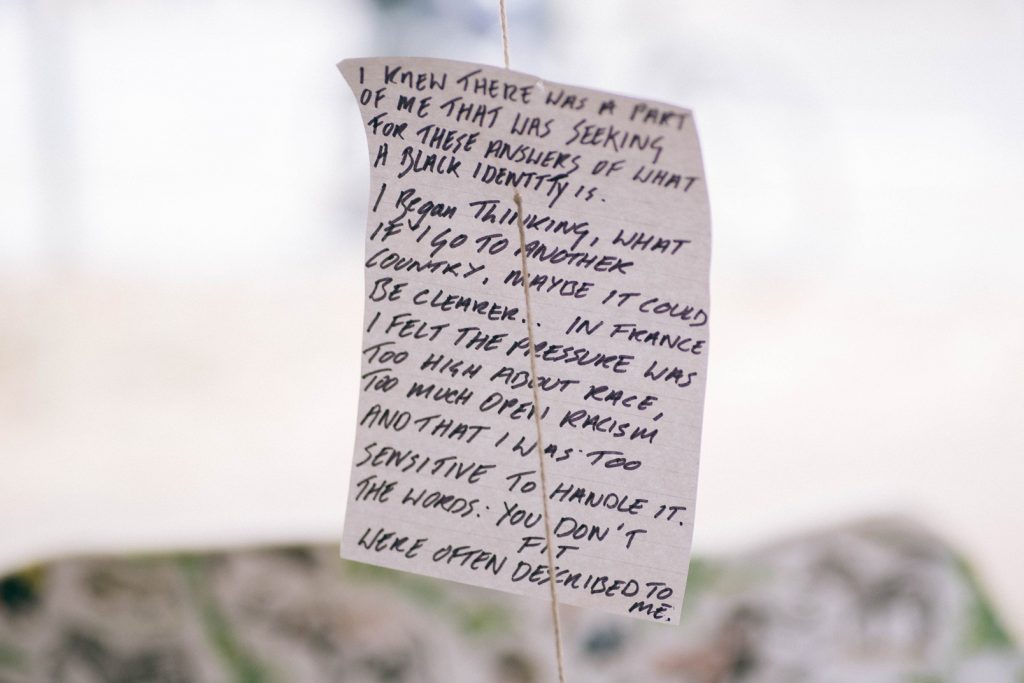 I KNEW THERE WAS A PART
OF ME THAT WAS SEEKING
FOR THESE ANSWERS OF WHAT
A BLACK IDENTITY IS.
I Began THINKING, WHAT
IF I GO TO ANOTHER
COUNTRY, MAYBE IT COULD
BE CLEARER.. IN FRANCE
I FELT THE PRESSURE WAS
TOO HIGH ABOUT RACE,
TOO MUCH OPEN RACISM
AND THAT I WAS TOO
SENSITIVE TO HANDLE IT.
THE WORDS: YOU DON'T
FIT
WERE OFTEN DESCRIBED TO
ME.